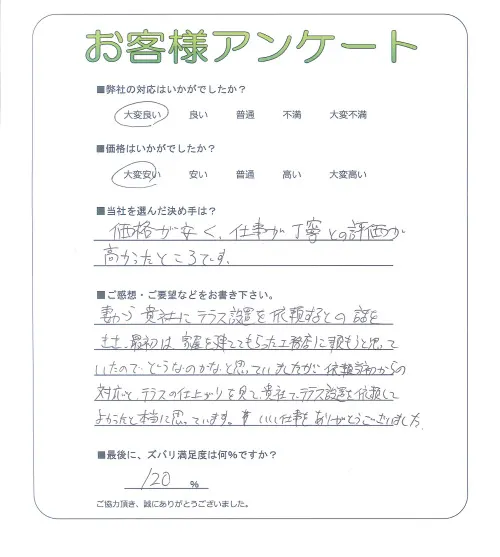 お客様アンケート
■弊社の対応はいかがでしたか？
大変良い 良い 普通 不満 大変不満
■価格はいかがでしたか？
大変安い 安い 普通 高い 大変高い
■当社を選んだ決め手は？
価格が安く、仕事が丁寧との評価が
高かったところです。
■ご感想・ご要望などをお書き下さい。
妻から貴社にテラス設置を依頼するとの話を
きき、最初は家屋を建ててもらった工務店に頼もうと思って
いたので、どうなのかなと思っていましたが、依頼当初からの
対応と、テラスの仕上がりを見て、貴社でテラス設置を依頼して
よかったと本当に思っています。いい仕事をありがとうございました。
■最後に、ズバリ満足度は何％ですか？
120 %
ご協力頂き、誠にありがとうございました。